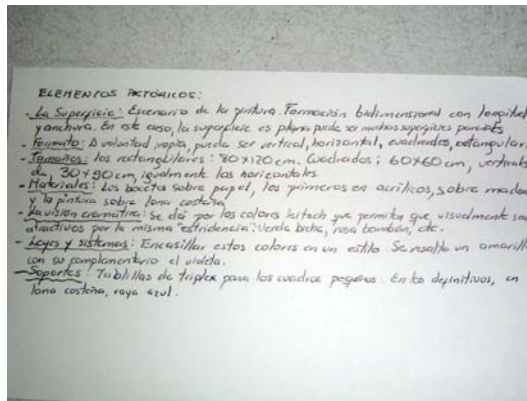 ELEMENTOS PICTÓRICOS:
- La Superficie: Escenario de la pintura. Formación bidimensional con longitud
y anchura. En este caso, la superficie es plana puede ser muchas superficies
- Formato: A voluntad propia, puede ser vertical, horizontal, cuadrados, rectangular.
- Tamaños: los rectangulares: 80x120 cm. Cuadrados: 60x60 cm, verticales
de 30x90 cm, igualmente los horizontales.
- Materiales: Los boceta sobre papel, los primeros en acrílicos, sobre madera
y la pintura sobre lona costeña.
- La visión cromática: Se da por los colores kitsch que permita que visualmente sean
atractivos por la misma "estridencia": Verde biche, rosa bombón, etc.
- Leyes y sistemas: Encasillar estos colores en un estilo. Se resalta un amarillo
con su complementario el violeta.
- Soportes: Tablillas de triplex para los cuadros pequeños. En los definitivos, en
lona costeña, raya azul.